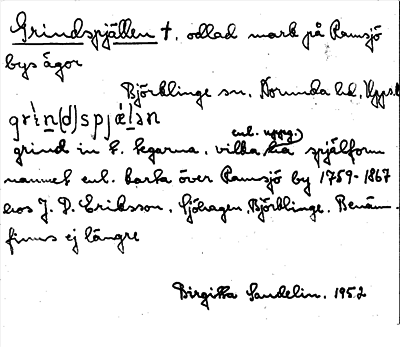 Grindspjällen †. odlad mark på Ramsjö
bys ägor
Björklinge sn, Norunda hd, Upps. l.
grìn(d)spjǽlən
grind in t. tegarna, vilka enl. uppg. ha spjälform
namnet enl. karta över Ramsjö by 1759-1867
hos J. D. Eriksson, Sjöhagen, Björklinge. Benämn.
finns ej längre
Birgitta Sandelin. 1952